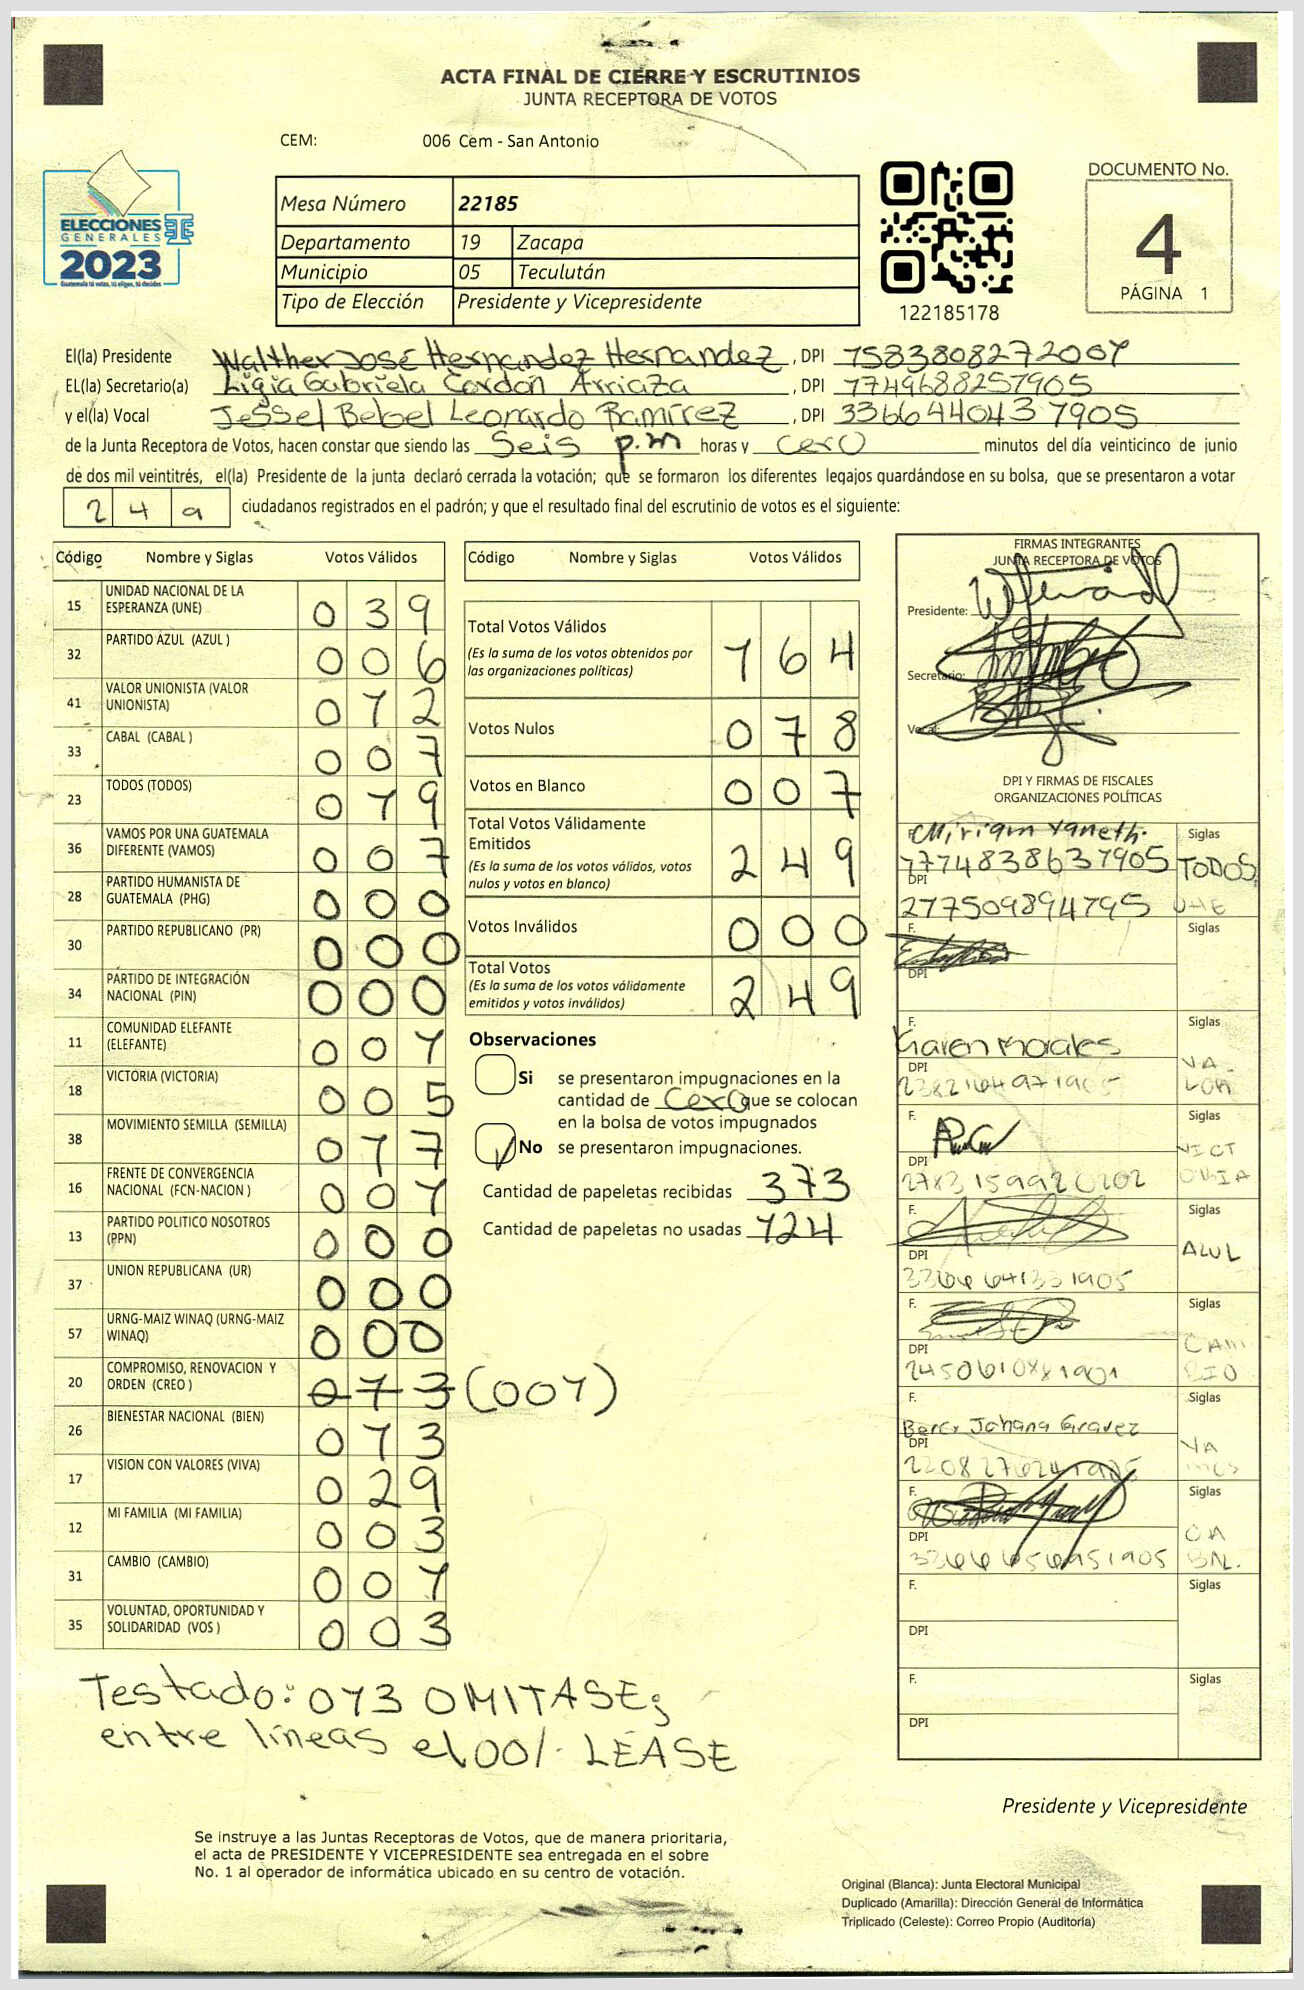 ACTA FINAL DE CIERRE Y ESCRUTINIOS
JUNTA RECEPTORA DE VOTOS
CEM: 006 Cem - San Antonio
ELECCIONES
GENERALES
2023
Guatemala tú votas, tú eliges, tú decides
Mesa Número 22185
Departamento 19 Zacapa
Municipio 05 Teculután
Tipo de Elección Presidente y Vicepresidente
122185178
DOCUMENTO No.
4
PÁGINA 1
El(la) Presidente Walther José Hernandez Hernandez, DPI 1583808272001
EL(la) Secretario(a) Ligia Gabriela Cordón Arriaza, DPI 1749688251905
y el(la) Vocal Jessel Betsel Leonardo Ramírez, DPI 3366440431905
de la Junta Receptora de Votos, hacen constar que siendo las Seis p.m horas y cero minutos del día veinticinco de junio
de dos mil veintitrés, el(la) Presidente de la junta declaró cerrada la votación; que se formaron los diferentes legajos guardándose en su bolsa, que se presentaron a votar
249 ciudadanos registrados en el padrón; y que el resultado final del escrutinio de votos es el siguiente:
Código Nombre y Siglas Votos Válidos
15 UNIDAD NACIONAL DE LA ESPERANZA (UNE) 039
32 PARTIDO AZUL (AZUL ) 006
41 VALOR UNIONISTA (VALOR UNIONISTA) 012
33 CABAL (CABAL ) 007
23 TODOS (TODOS) 019
36 VAMOS POR UNA GUATEMALA DIFERENTE (VAMOS) 007
28 PARTIDO HUMANISTA DE GUATEMALA (PHG) 000
30 PARTIDO REPUBLICANO (PR) 000
34 PARTIDO DE INTEGRACIÓN NACIONAL (PIN) 000
11 COMUNIDAD ELEFANTE (ELEFANTE) 001
18 VICTORIA (VICTORIA) 005
38 MOVIMIENTO SEMILLA (SEMILLA) 017
16 FRENTE DE CONVERGENCIA NACIONAL (FCN-NACION ) 001
13 PARTIDO POLITICO NOSOTROS (PPN) 000
37 UNION REPUBLICANA (UR) 000
57 URNG-MAIZ WINAQ (URNG-MAIZ WINAQ) 000
20 COMPROMISO, RENOVACION Y ORDEN (CREO ) 013 (001)
26 BIENESTAR NACIONAL (BIEN) 013
17 VISION CON VALORES (VIVA) 029
12 MI FAMILIA (MI FAMILIA) 003
31 CAMBIO (CAMBIO) 001
35 VOLUNTAD, OPORTUNIDAD Y SOLIDARIDAD (VOS ) 003
Testado: 013 OMITASE;
entre líneas el 001. LEASE
Código Nombre y Siglas Votos Válidos
Total Votos Válidos 164
(Es la suma de los votos obtenidos por
las organizaciones políticas)
Votos Nulos 078
Votos en Blanco 007
Total Votos Válidamente
Emitidos 249
(Es la suma de los votos válidos, votos
nulos y votos en blanco)
Votos Inválidos 000
Total Votos 249
(Es la suma de los votos válidamente
emitidos y votos inválidos)
Observaciones
Si se presentaron impugnaciones en la
cantidad de Cero que se colocan
en la bolsa de votos impugnados
No se presentaron impugnaciones.
Cantidad de papeletas recibidas 373
Cantidad de papeletas no usadas 124
FIRMAS INTEGRANTES
JUNTA RECEPTORA DE VOTOS
Presidente:
Secretario:
Vocal:
DPI Y FIRMAS DE FISCALES
ORGANIZACIONES POLÍTICAS
F. Miriam Yaneth. Siglas
1774838631905 TODOS
DPI
UNE
F. Siglas
DPI
F. Siglas
Karen Morales
DPI VALOR
2382164971905
F. Siglas
DPI VICTORIA
2783159920202
F. Siglas
DPI AZUL
3366641331905
F. Siglas
DPI CAMBIO
2450610881901
F. Siglas
Johana
DPI VAMOS
2208276241905
F. Siglas
DPI CABAL.
3366656951905
F. Siglas
DPI
F. Siglas
DPI
Presidente y Vicepresidente
Se instruye a las Juntas Receptoras de Votos, que de manera prioritaria,
el acta de PRESIDENTE Y VICEPRESIDENTE sea entregada en el sobre
No. 1 al operador de informática ubicado en su centro de votación.
Original (Blanca): Junta Electoral Municipal
Duplicado (Amarilla): Dirección General de Informática
Triplicado (Celeste): Correo Propio (Auditoría)